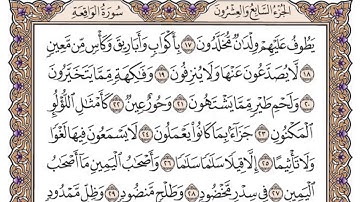 الجزء السابع والعشرون سورة الواقعة
يَطُوفُ عَلَيْهِمْ وِلْدَٰنٌ مُّخَلَّدُونَ ١٧ بِأَكْوَابٍ وَأَبَارِيقَ وَكَأْسٍ مِّن مَّعِينٍ
١٨ لَّا يُصَدَّعُونَ عَنْهَا وَلَا يُنزِفُونَ ١٩ وَفَٰكِهَةٍ مِّمَّا يَتَخَيَّرُونَ
٢٠ وَلَحْمِ طَيْرٍ مِّمَّا يَشْتَهُونَ ٢١ وَحُورٌ عِينٌ ٢٢ كَأَمْثَٰلِ اللُّؤْلُؤِ
الْمَكْنُونِ ٢٣ جَزَآءًۢ بِمَا كَانُوا يَعْمَلُونَ ٢٤ لَا يَسْمَعُونَ فِيهَا لَغْوًا
وَلَا تَأْثِيمًا ٢٥ إِلَّا قِيلًا سَلَٰمًا سَلَٰمًا ٢٦ وَأَصْحَٰبُ الْيَمِينِ مَآ أَصْحَٰبُ
الْيَمِينِ ٢٧ فِي سِدْرٍ مَّخْضُودٍ ٢٨ وَطَلْحٍ مَّنضُودٍ ٢٩ وَظِلٍّ مَّمْدُودٍ